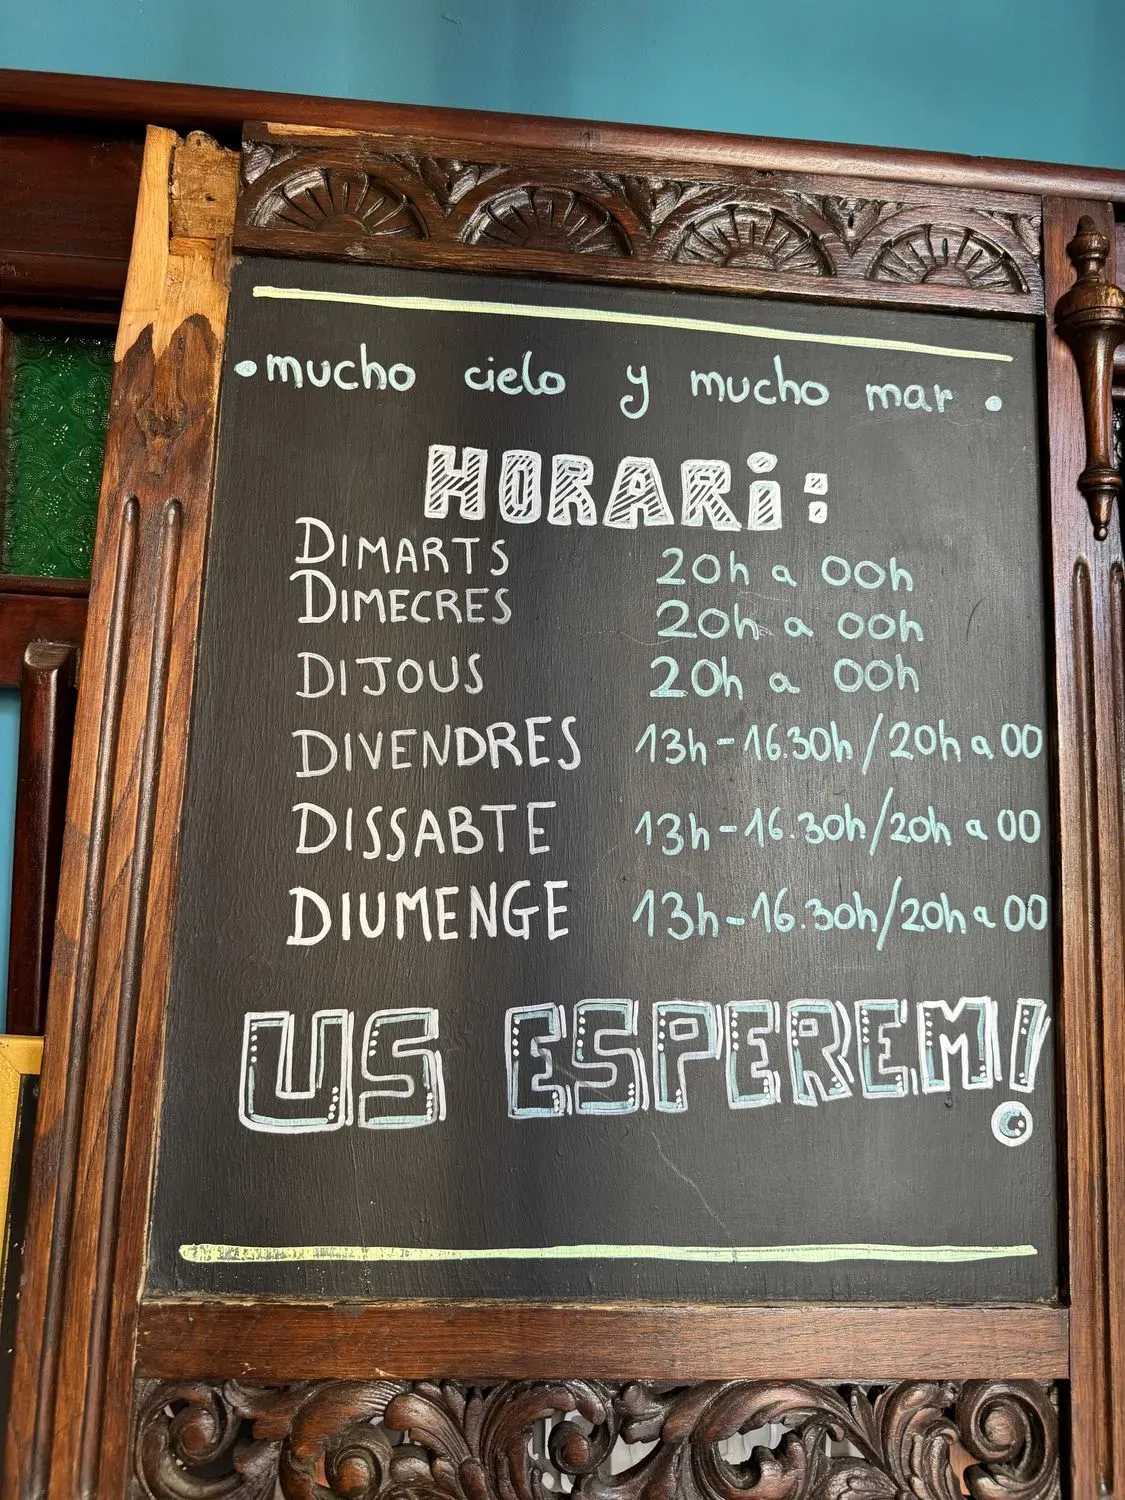 •mucho cielo y mucho mar•
HORARi:
DIMARTS 20h a 00h
DIMECRES 20h a 00h
DIJOUS 20h a 00h
DIVENDRES 13h-16.30h/20h a 00
DISSABTE 13h-16.30h/20h a 00
DIUMENGE 13h-16.30h/20h a 00
US ESPEREM!